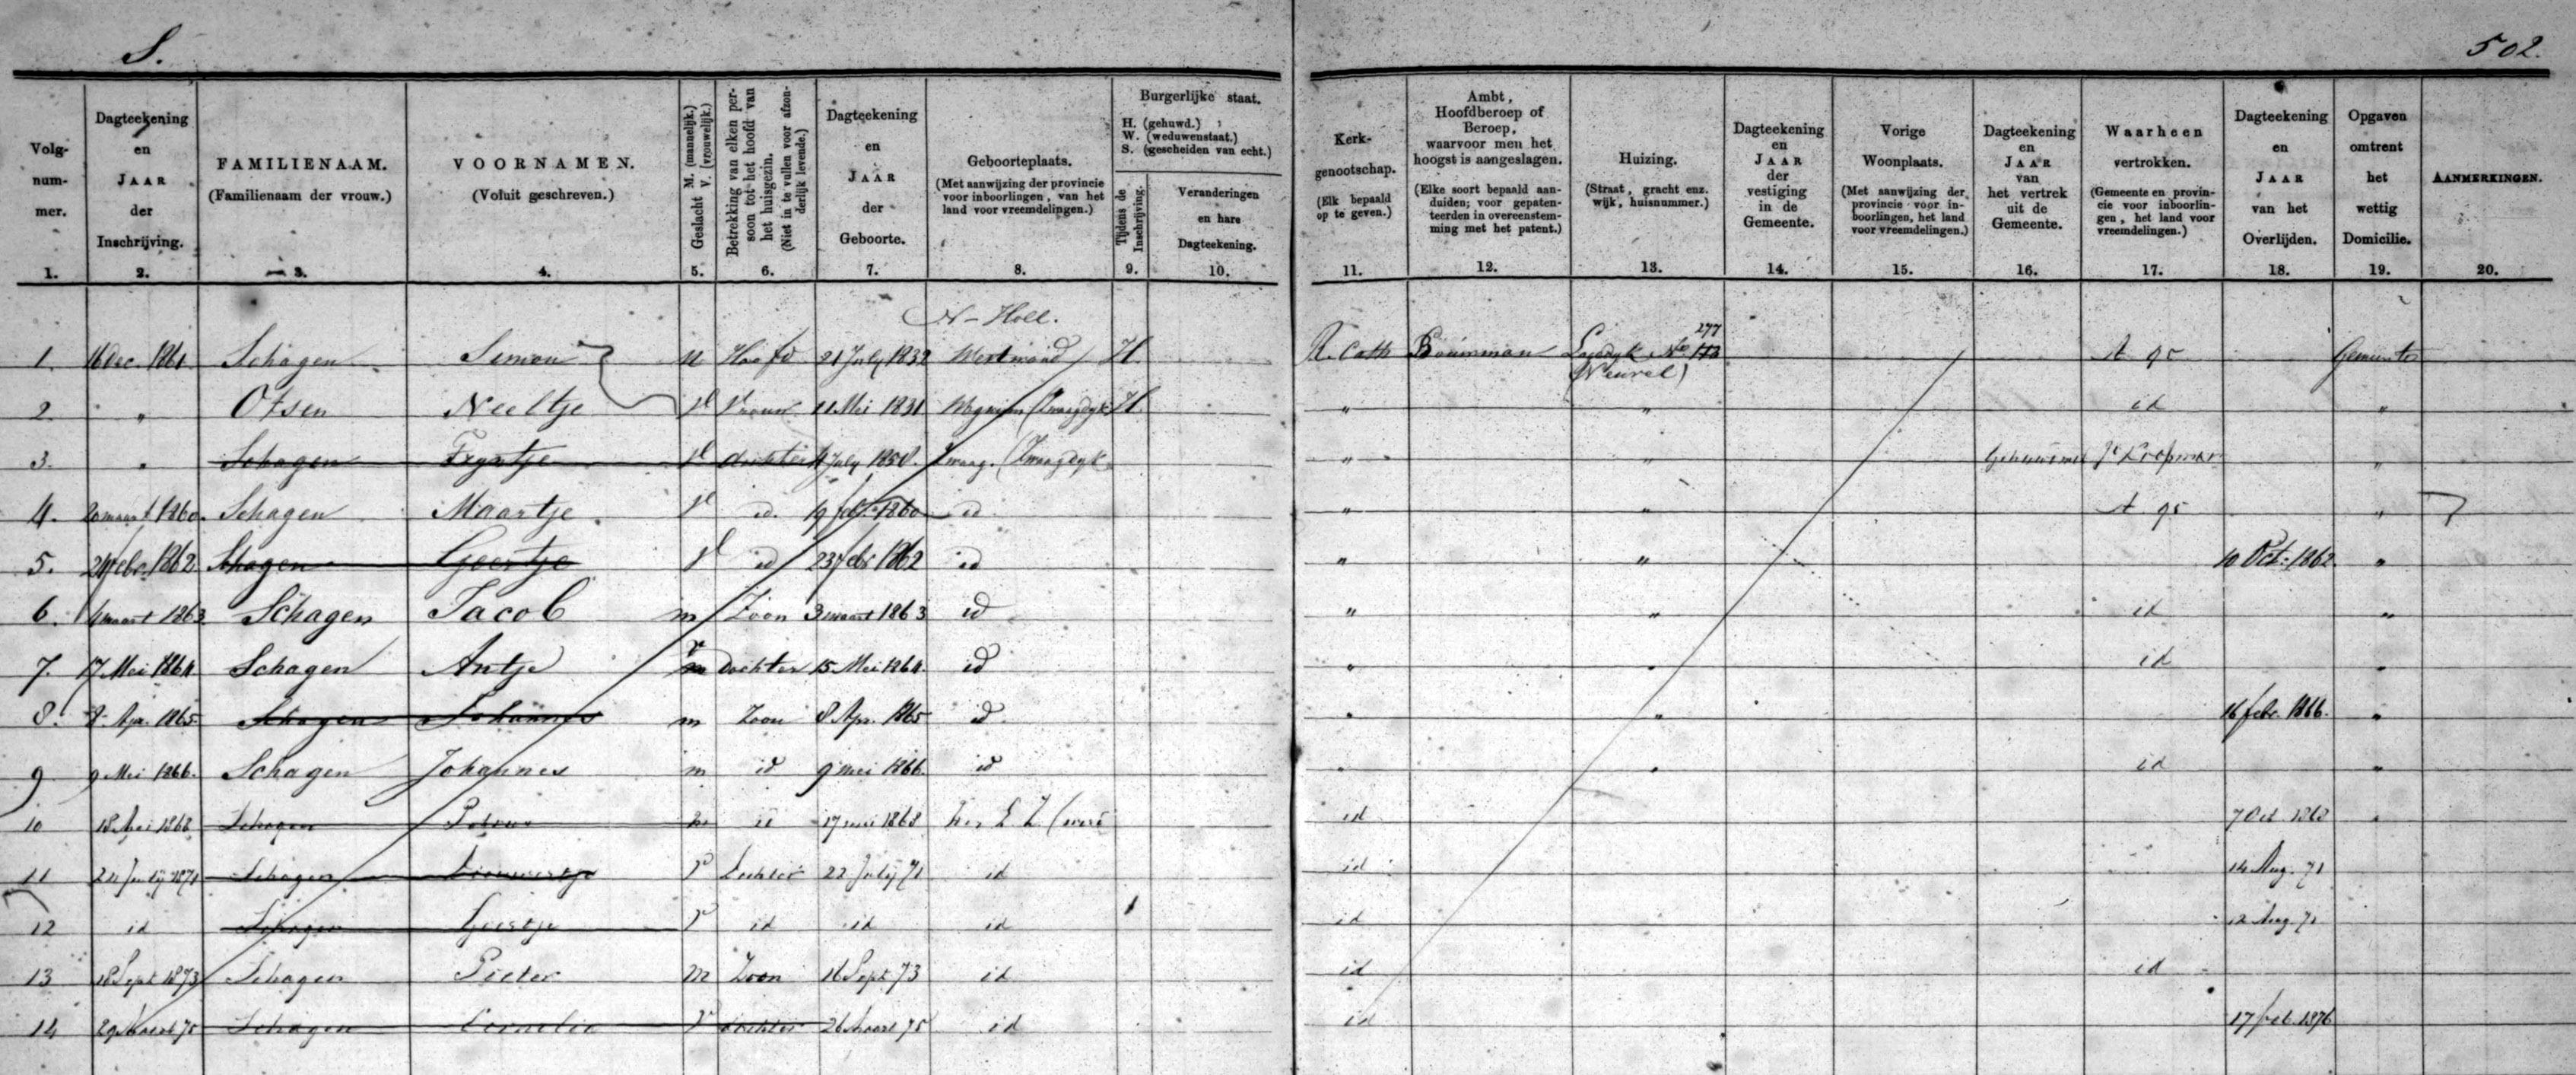 S.
502.
Volg-
num-
mer.
1.
Dagteekening
en
JAAR
der
Inschrijving.
2.
FAMILIENAAM.
(Familienaam der vrouw.)
3.
VOORNAMEN.
(Voluit geschreven.)
4.
Geslacht M. (mannelijk.)
V. (vrouwelijk.)
5.
Betrekking van elken per-
soon tot het hoofd van
het huisgezin.
(Niet in te vullen voor afzon-
derlijk levende.)
6.
Dagteekening
en
JAAR
der
Geboorte.
7.
Geboorteplaats.
(Met aanwijzing der provincie
voor inboorlingen, van het
land voor vreemdelingen.)
8.
Burgerlijke staat.
H. (gehuwd.)
W. (weduwenstaat.)
S. (gescheiden van echt.)
Tijdens de
Inschrijving.
9.
Veranderingen
en hare
Dagteekening.
10.
Kerk-
genootschap.
(Elk bepaald
op te geven.)
11.
Ambt,
Hoofdberoep of
Beroep,
waarvoor men het
hoogst is aangeslagen.
(Elke soort bepaald aan-
duiden; voor gepaten-
teerden in overeenstem-
ming met het patent.)
12.
Huizing.
(Straat, gracht enz.
wijk, huisnummer.)
13.
Dagteekening
en
JAAR
der
vestiging
in de
Gemeente.
14.
Vorige
Woonplaats.
(Met aanwijzing der
provincie voor in-
boorlingen, het land
voor vreemdelingen.)
15.
Dagteekening
en
JAAR
van
het vertrek
uit de
Gemeente.
16.
Waarheen
vertrokken.
(Gemeente en provin-
cie voor inboorlin-
gen, het land voor
vreemdelingen.)
17.
Dagteekening
en
JAAR
van het
Overlijden.
18.
Opgaven
omtrent
het
wettig
Domicilie.
19.
AANMERKINGEN.
20.
N-Holl.
277
1. 16 Dec. 1861 Schagen Simon M Hoofd 21 July 1832 Westwoud H R. Cath Bouwman No 113 A 95 Gemeente
2. " Otsen Neeltje V Vrouw 11 Mei 1831 (Zwaagdyk H " " id "
3. " Schagen Tryntje V dochter July 1858 Zwaag. (Zwaagdyk " " "
4. 20 maart 1860. Schagen Maartje V id. 19 feb. 1860 id " " A 95 "
5. 24 febr. 1862 Schagen Geertje V id 23 febr 1862 id " " 10 Oct: 1862 "
6. 4 maart 1863 Schagen Jacob m Zoon 3 maart 1863 id " " id "
7. 17 Mei 1864 Schagen Antje V dochter 15 Mei 1864. id " " id "
8. 8 Apr. 1865 Schagen Johannes m Zoon 8 Apr. 1865 id " " 16 febr. 1866. "
9 9 Mei 1866. Schagen Johannes m id 9 mei 1866. id " " id "
10 18 Mei 1868 Schagen Petrus m id 17 mei 1868 id 7 Oct 1868 "
11 24 July 1871 Schagen V Dochter 22 July 71 id id 14 Aug. 71
12 id Schagen Geertje V id id id id 12 Aug. 71
13 18 Sept 1873 Schagen Pieter M Zoon 16 Sept 73 id id id
14 29 Maart 75 Schagen Cornelia V dochter 26 Maart 75 id id 17 feb. 1876